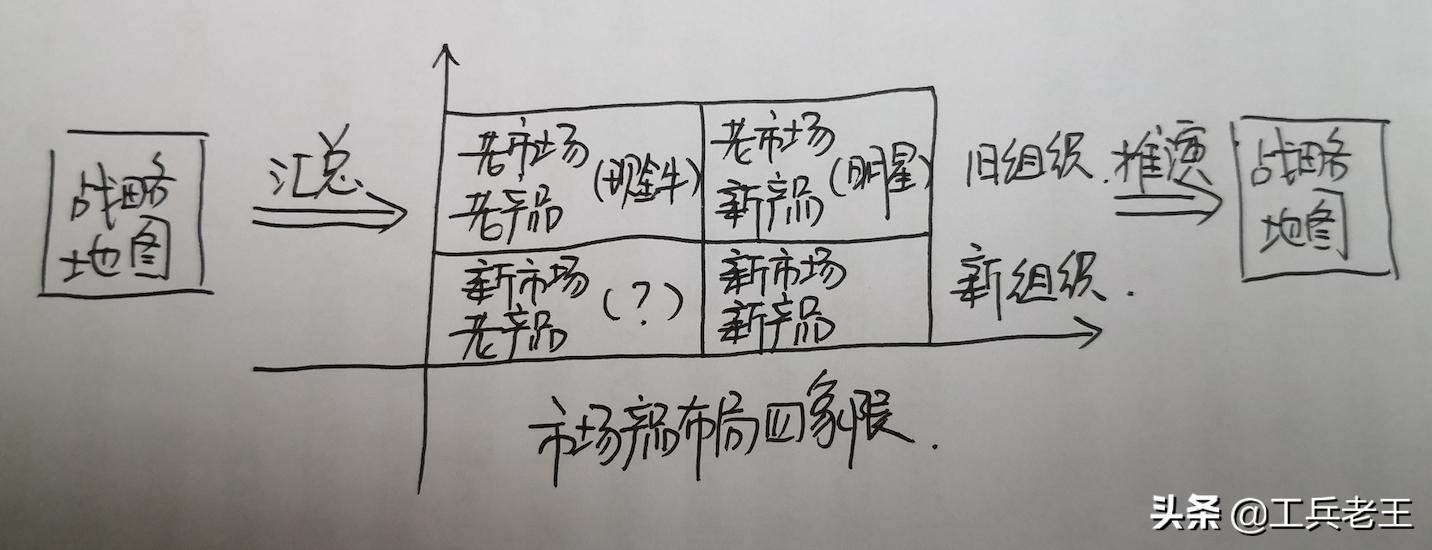 战略
地图
汇总
老市场
老产品
(现金牛)
老市场
新产品
(明星)
新市场
老产品
(?)
新市场
新产品
旧组织.
新组织.
推演
战略
地图
市场产品布局四象限.
头条 @工兵老王